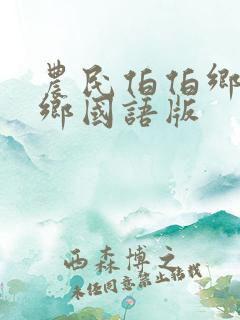 農民伯伯鄉
鄉國語版
西森博之
未任同意禁止轉載